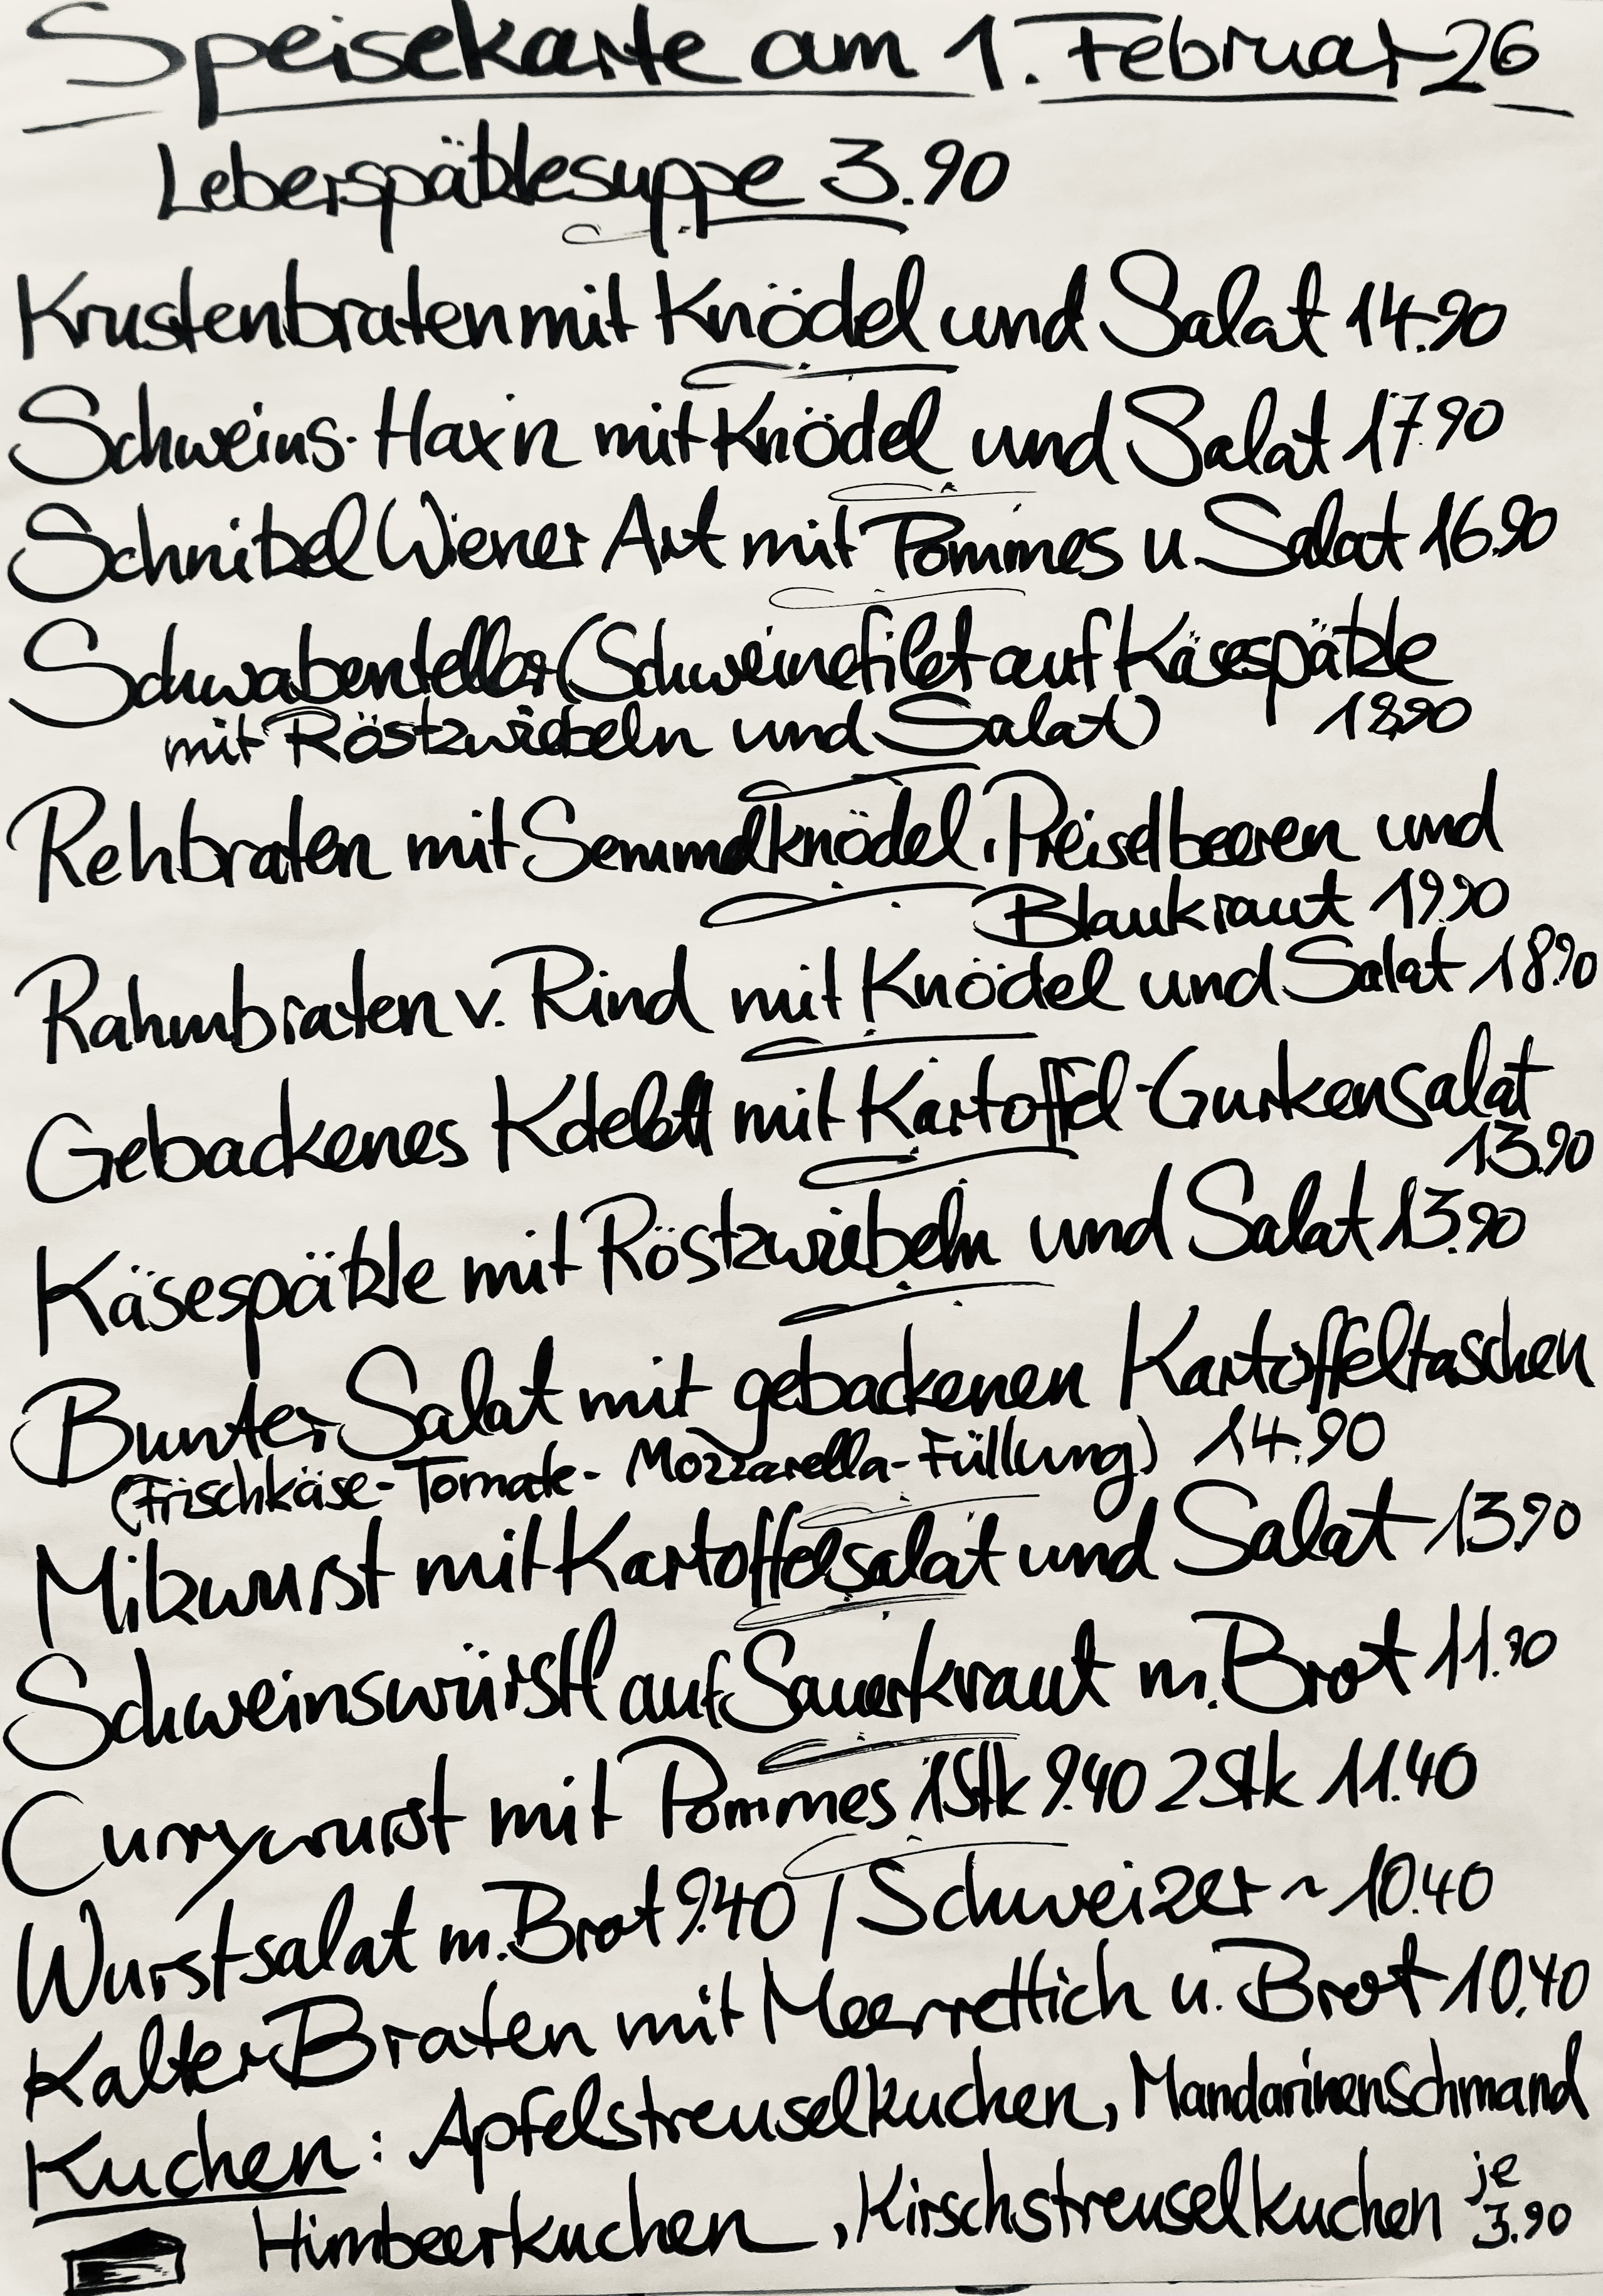 Speisekarte am 1. Februar 26
Leberspätzlesuppe 3.90
Krustenbraten mit Knödel und Salat 14.90
Schweins-Haxn mit Knödel und Salat 17.90
Schnitzel Wiener Art mit Pommes u. Salat 16.90
Schwabenteller (Schweinefilet auf Käsespätzle
mit Röstzwiebeln und Salat) 18.90
Rehbraten mit Semmelknödel, Preiselbeeren und
Blaukraut 19.90
Rahmbraten v. Rind mit Knödel und Salat 18.90
Gebackenes mit Kartoffel-Gurkensalat
13.90
Käsespätzle mit Röstzwiebeln und Salat 13.90
Bunter Salat mit gebackenen Kartoffeltaschen
(Frischkäse-Tomate-Mozzarella-Füllung) 14.90
Milzwurst mit Kartoffelsalat und Salat 13.90
Schweinswürstl auf Sauerkraut m. Brot 11.90
Currywurst mit Pommes 1Stk 9.40 2Stk 11.40
Wurstsalat m. Brot 9.40 / Schweizer ~ 10.40
Kalter Braten mit Meerrettich u. Brot 10.40
Kuchen: Apfelstreuselkuchen, Mandarinenschmand
Himbeerkuchen, Kirschstreuselkuchen je
3.90